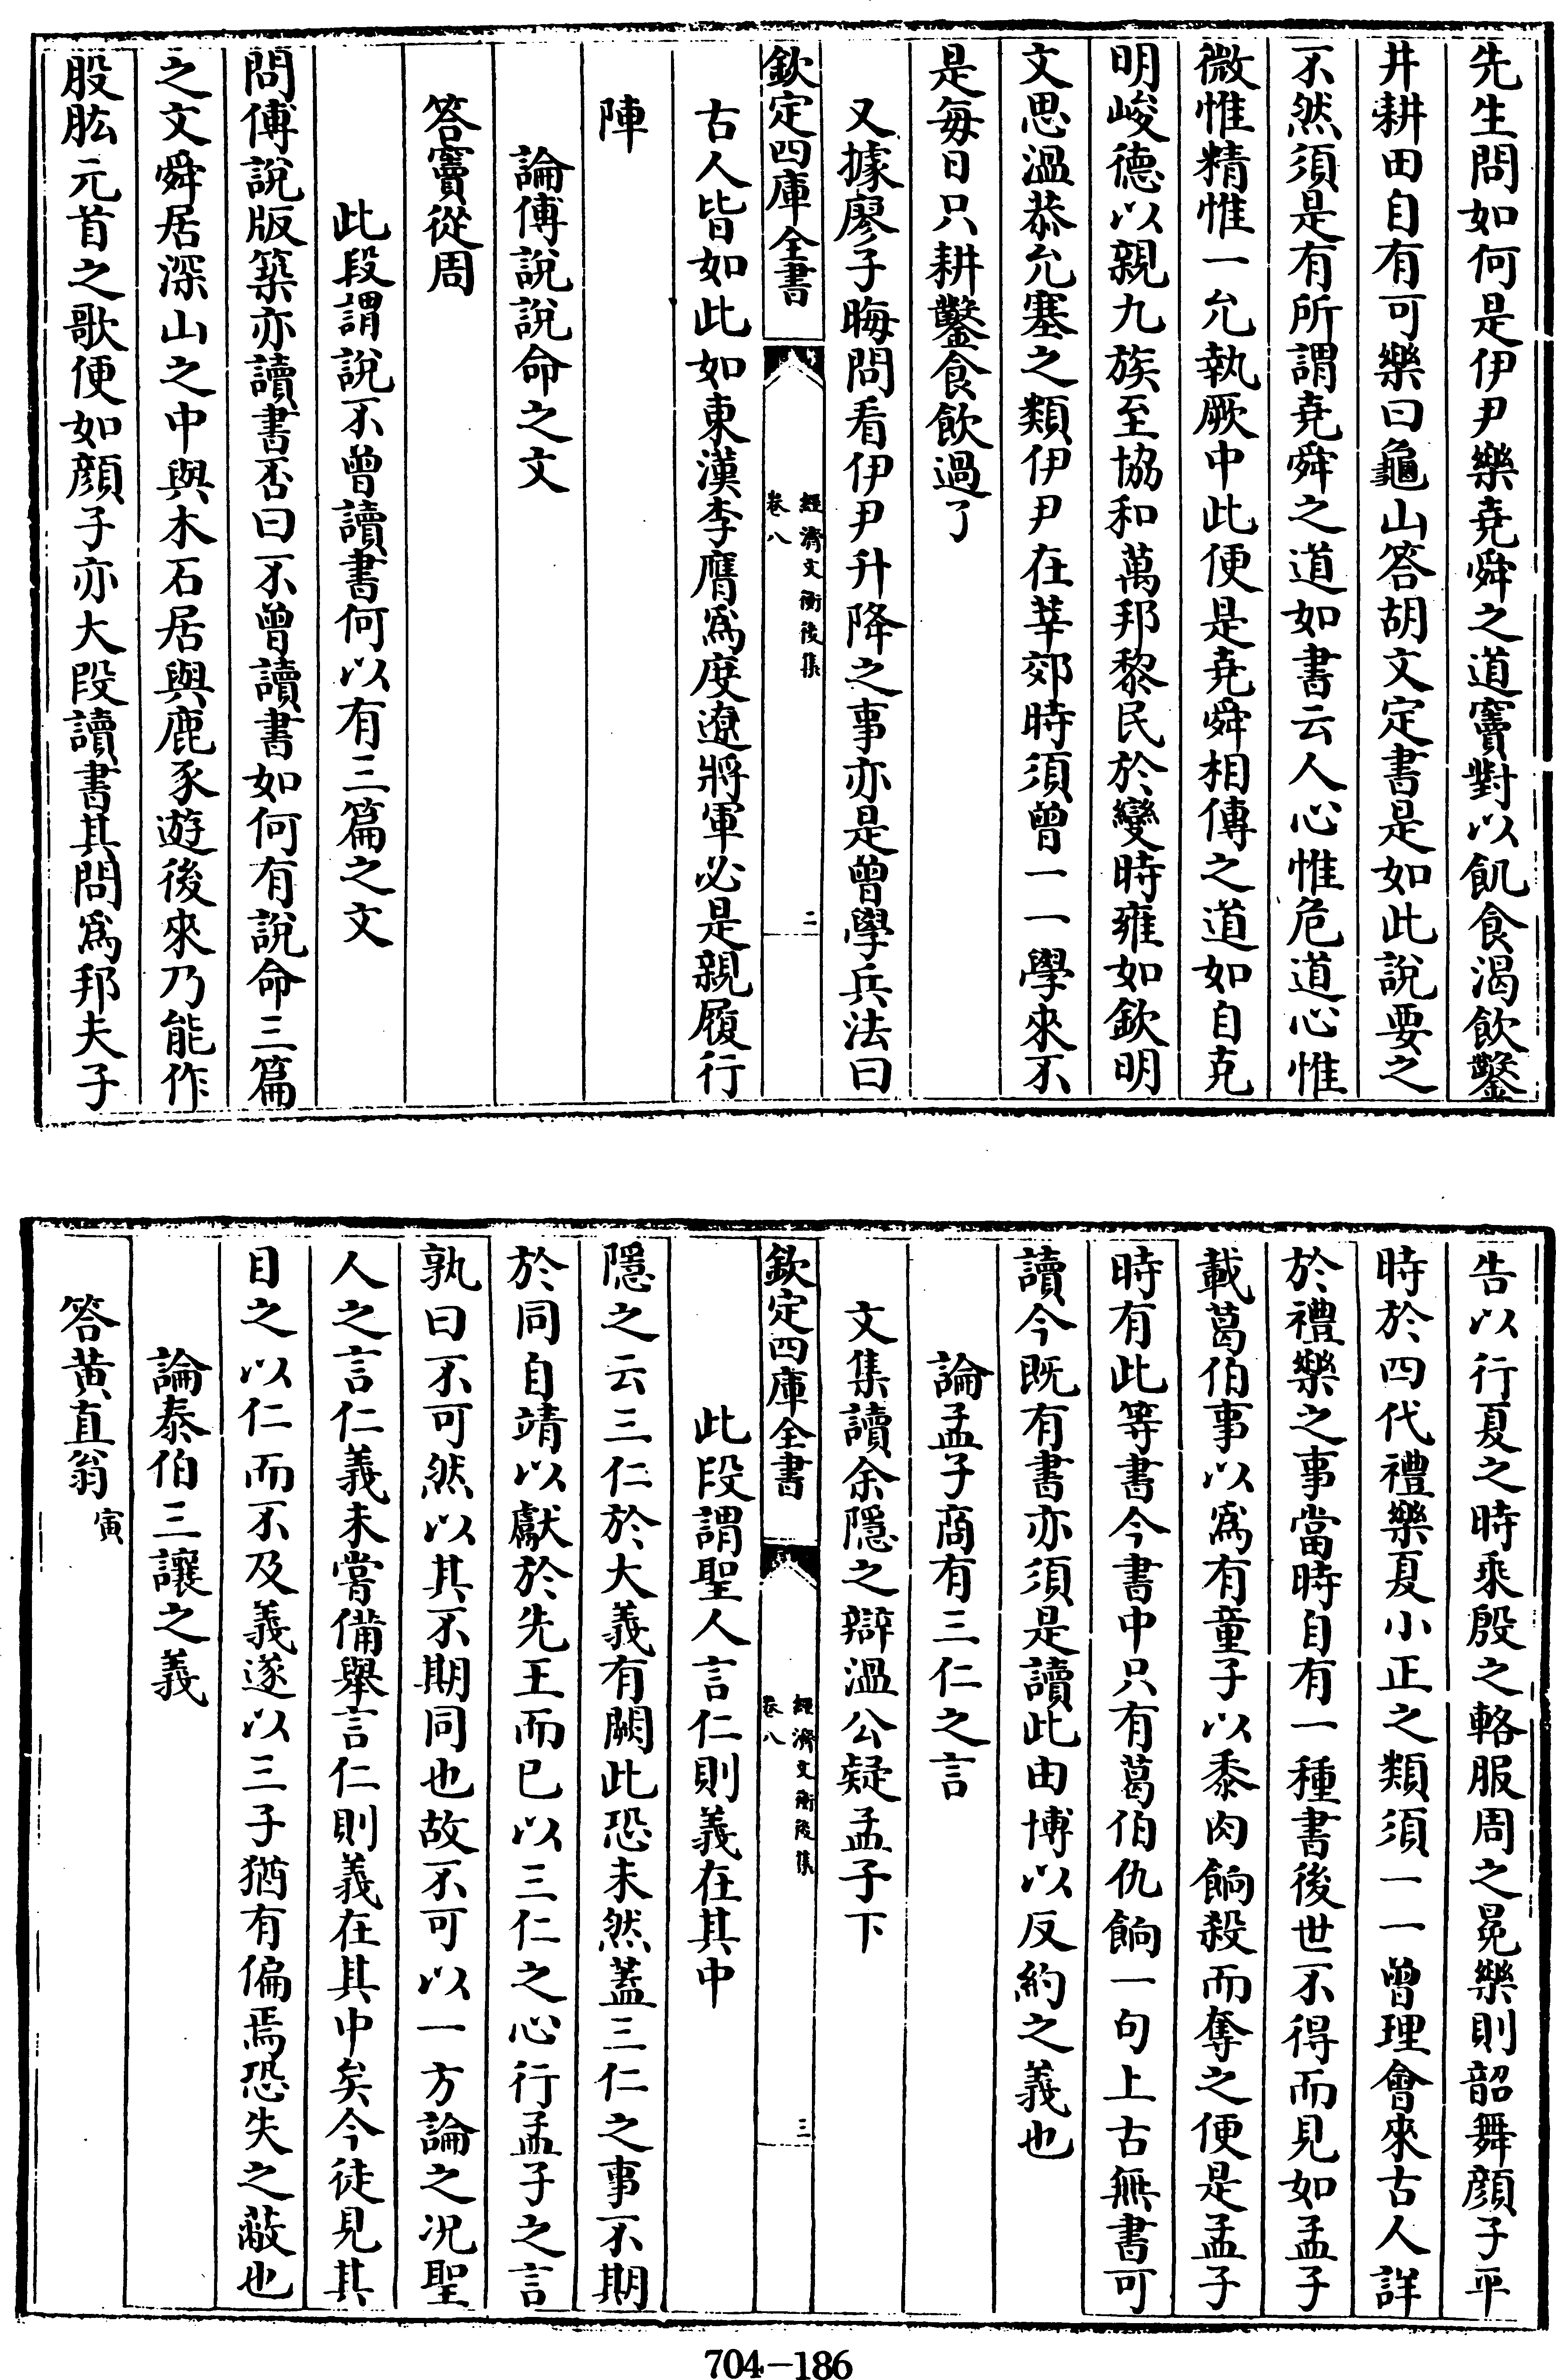 先生問如何是伊尹樂堯舜之道竇對以飢食渴飲鑿
井耕田自有可樂曰龜山答胡文定書是如此說要之
不然須是有所謂堯舜之道如書云人心惟危道心惟
微惟精惟一允執厥中此便是堯舜相傳之道如自克
明峻德以親九族至協和萬邦黎民於變時雍如欽明
文思溫恭允塞之類伊尹在莘郊時須曾一一學來不
是每日只耕鑿食飲過了
又據廖子晦問看伊尹升降之事亦是曾學兵法曰
欽定四庫全書
經濟文衡後集
卷八
二
古人皆如此如東漢李膺爲度遼將軍必是親履行
陣
論傅說說命之文
答竇從周
此段謂說不曾讀書何以有三篇之文
問傅說版築亦讀書否曰不曾讀書如何有說命三篇
之文舜居深山之中與木石居與鹿豕遊後來乃能作
股肱元首之歌便如顏子亦大段讀書其問爲邦夫子
告以行夏之時乘殷之輅服周之冕樂則韶舞顏子平
時於四代禮樂夏小正之類須一一曾理會來古人詳
於禮樂之事當時自有一種書後世不得而見如孟子
載葛伯事以爲有童子以黍肉餉殺而奪之便是孟子
時有此等書今書中只有葛伯仇餉一句上古無書可
讀今既有書亦須是讀此由博以反約之義也
論孟子商有三仁之言
文集讀余隱之辯溫公疑孟子下
欽定四庫全書
經濟文衡後集
卷八
三
此段謂聖人言仁則義在其中
隱之云三仁於大義有闕此恐未然蓋三仁之事不期
於同自靖以獻於先王而已以三仁之心行孟子之言
孰曰不可然以其不期同也故不可以一方論之況聖
人之言仁義未嘗備舉言仁則義在其中矣今徒見其
目之以仁而不及義遂以三子猶有偏焉恐失之蔽也
論泰伯三讓之義
答黃直翁寅
704-186